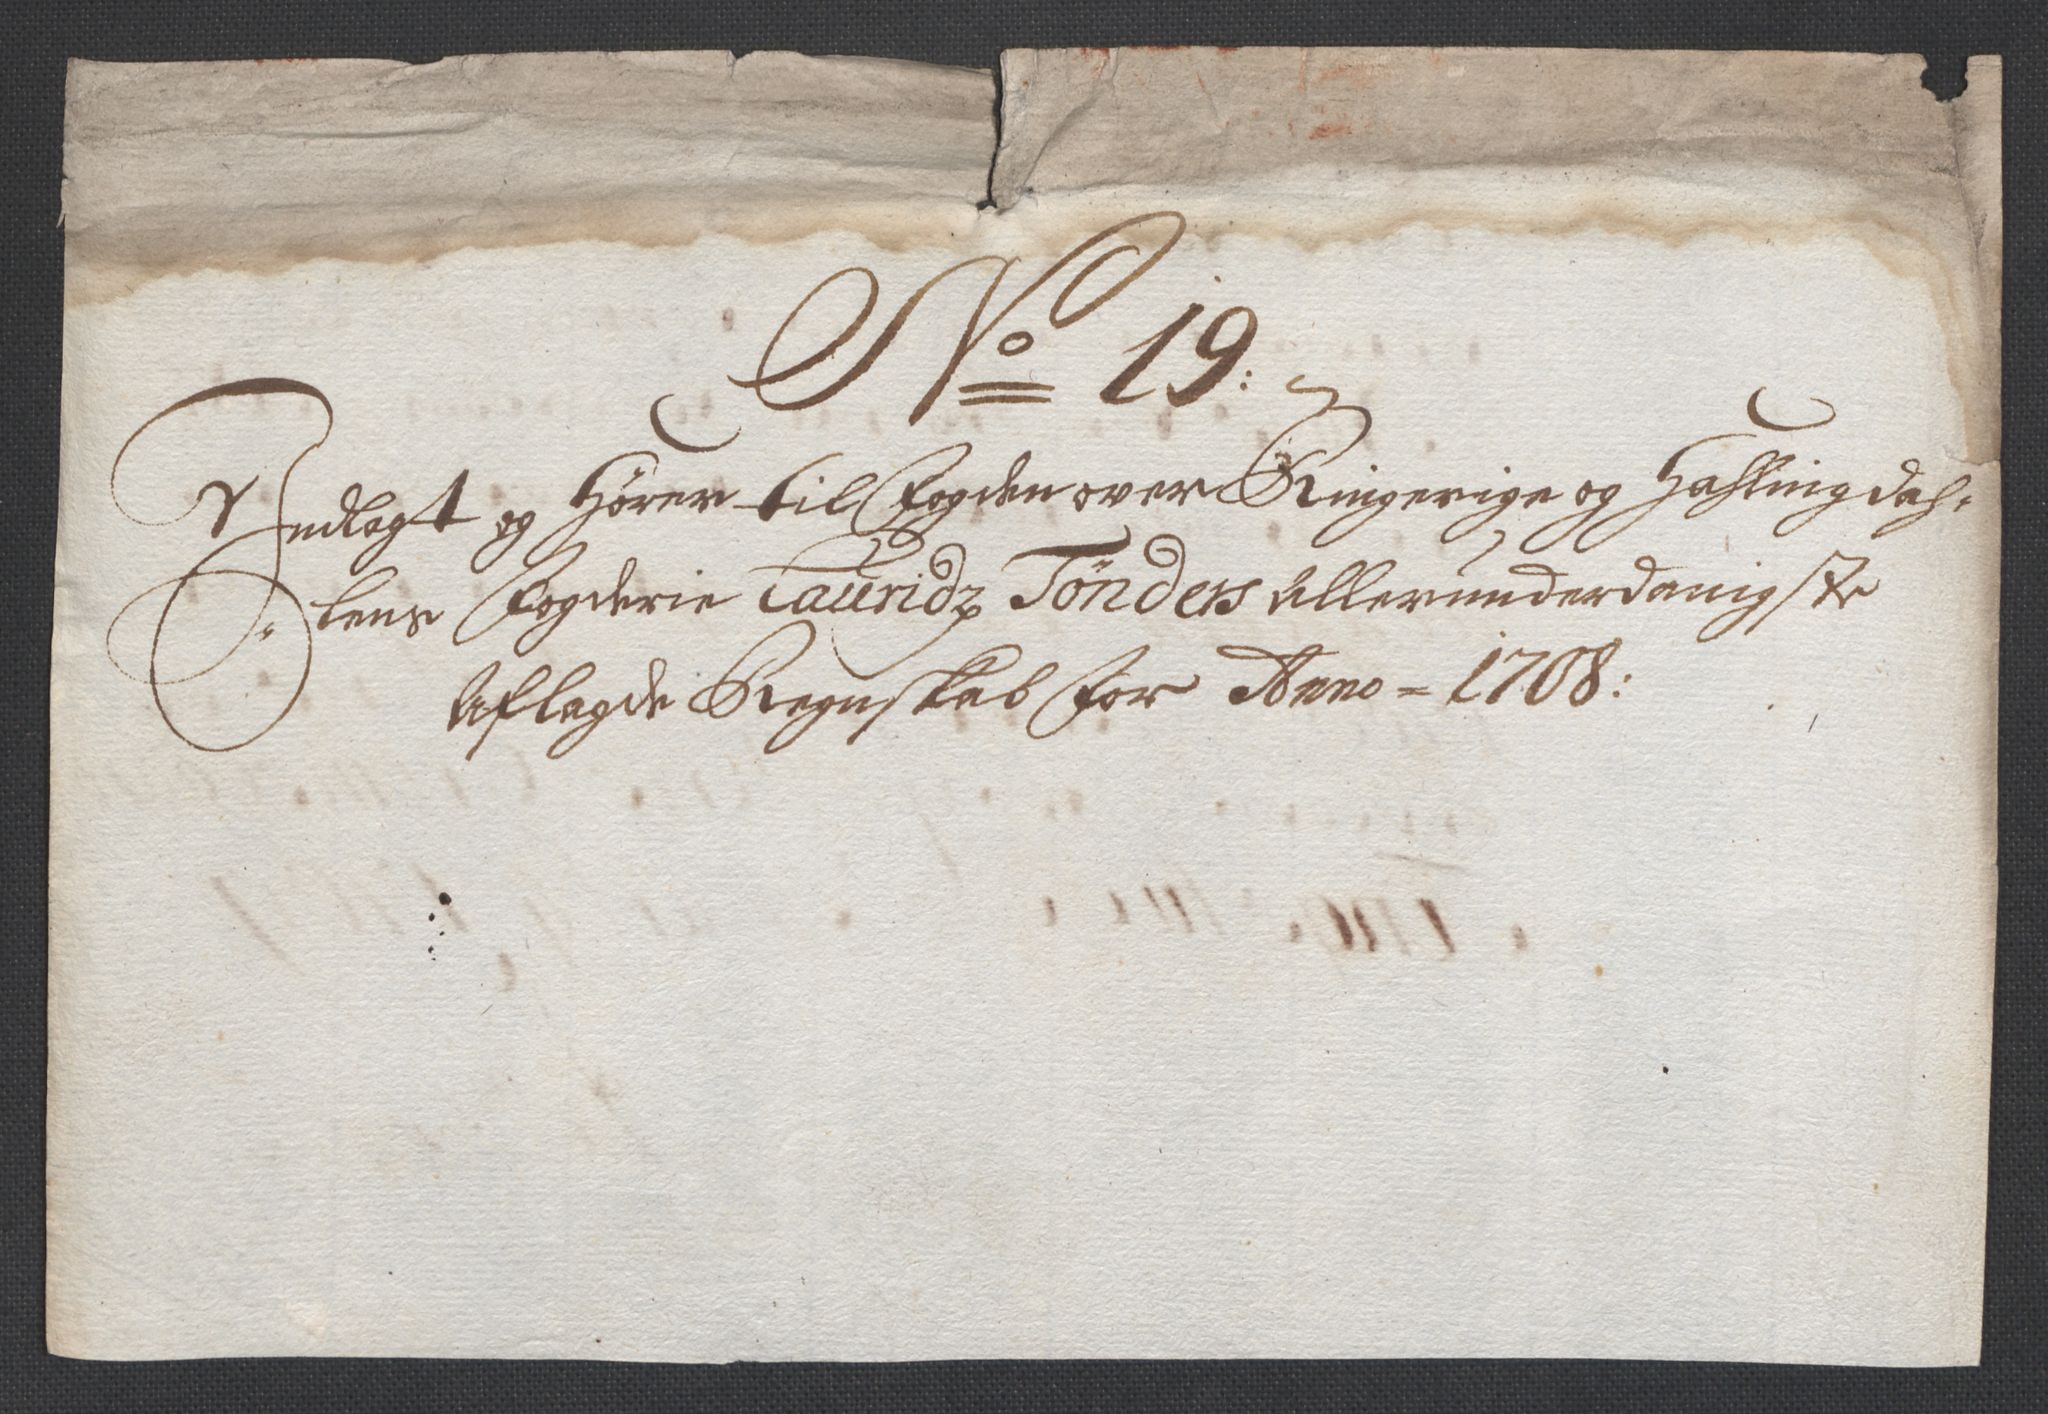 No 19:
Indlagt og Hörer til Fogden over Ringerige og Hahlingdah-
lens Fogderie Lauridz Tönders Allerunderdanigste
Aflagde Regnskab for Anno = 1708: